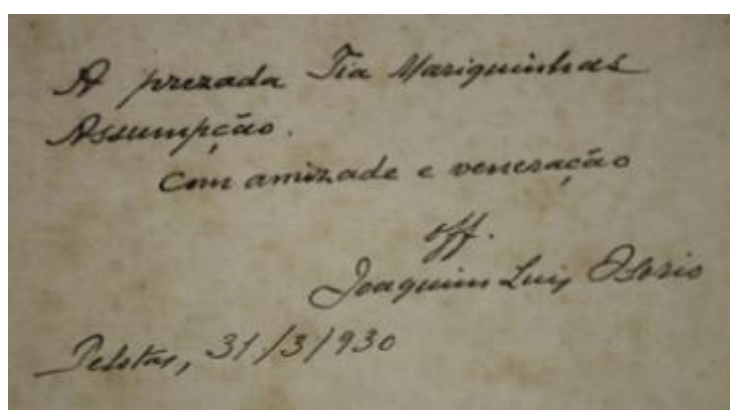 A prezada Tia Mariquinhas
Assumpção.
Com amizade e veneração
off.
Joaquim Luis Osorio
Pelotas, 31/3/930